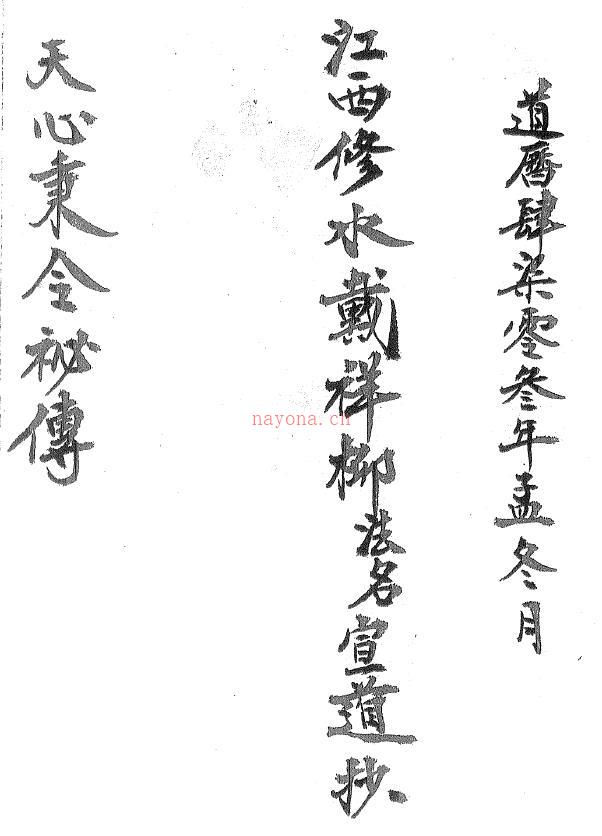 道曆肆柒零叁年孟冬月
江西修水戴祥柳法名宣道抄
天心秉令秘傳
nayona.cn